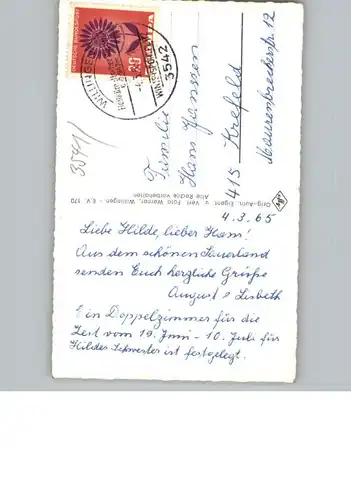 WILLINGEN
3542
20
Familie
Hans Janssen
415 Krefeld
Maurenbrecherstr. 12
3541/
Orig.-Aufn. Eigent. u. Verl. Foto Werner, Willingen - E.V. 170
Alle Rechte vorbehalten
4.3.65
Liebe Hilde, lieber Hans!
Aus dem schönen Sauerland
senden Euch herzliche Grüße
August & Lisbeth
Ein Doppelzimmer für die
Zeit vom 19. Juni - 10. Juli für
Hildes Schwester ist festgelegt.